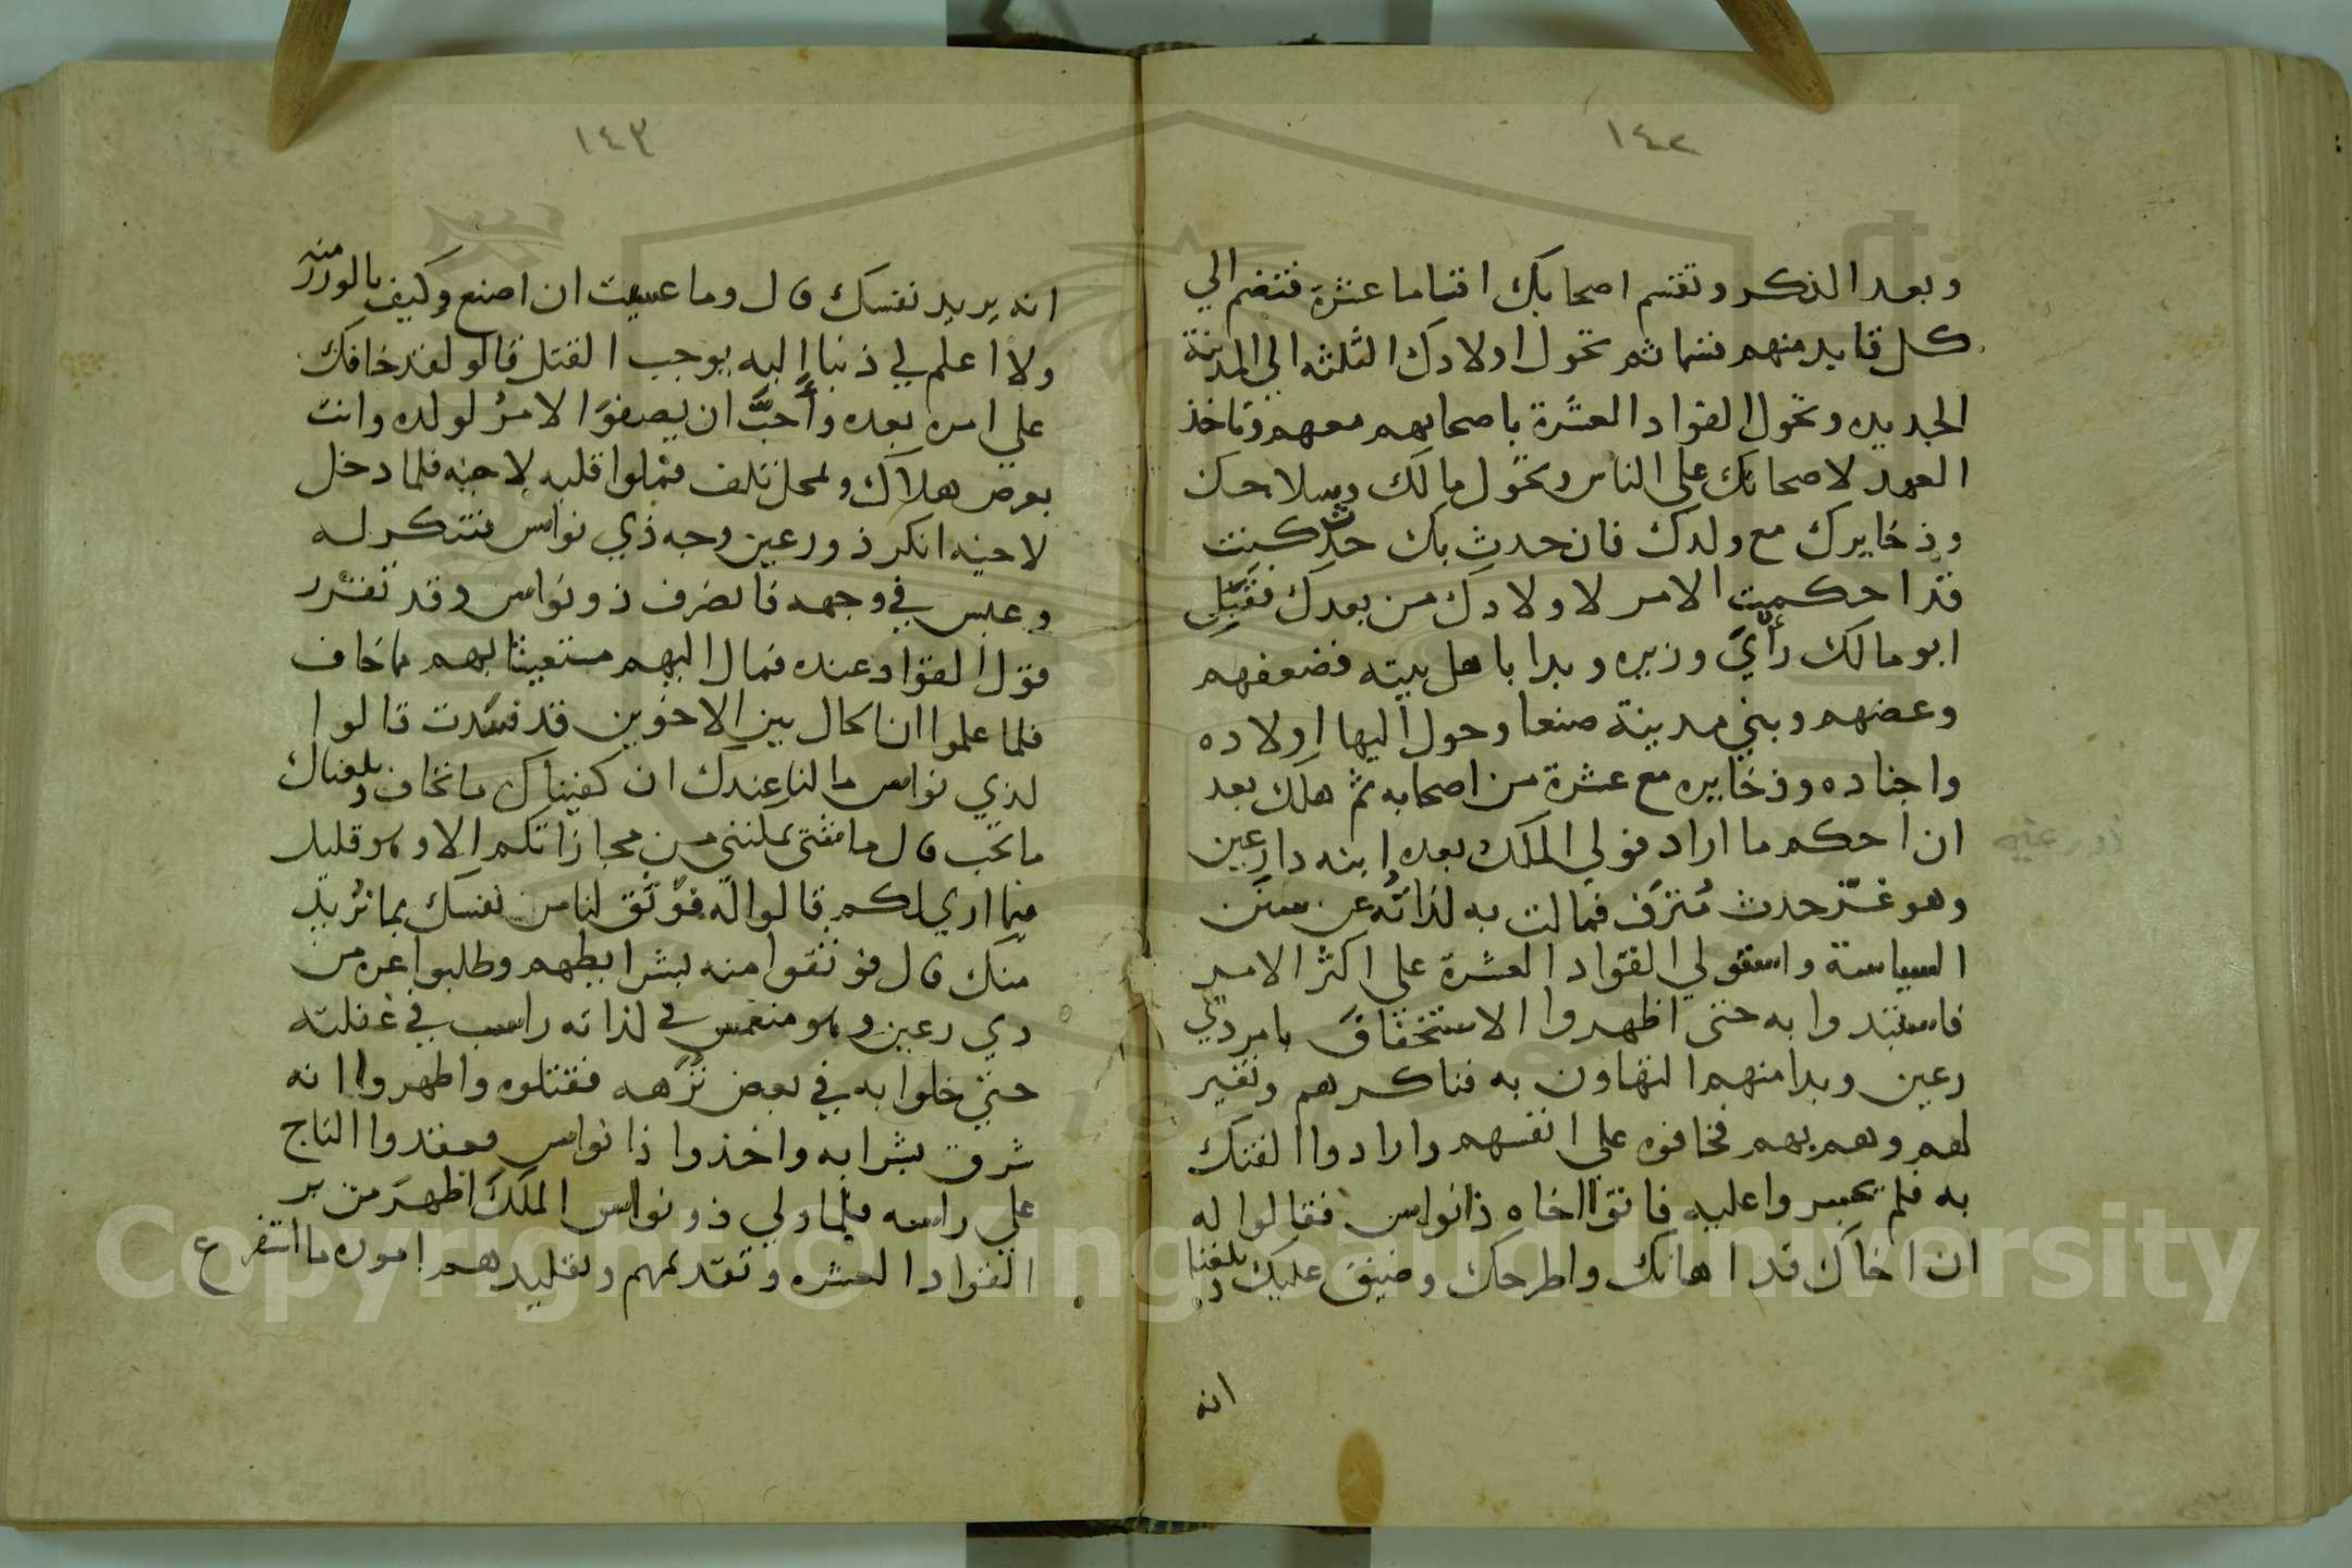 ١٤٢
وبعد الذكر وتقسم اصحابك اقساما عشرة فتضم الي
كل قايد منهم قسما ثم تحول اولادك الثلثه الي المدينة
الجديده وتحول القواد العشرة باصحابهم معهم وتاخذ
العهد لاصحابك علي الناس وتحول مالك وسلاحك
وذخايرك مع ولدك فان حدث بك حدث كنت
قد احكمت الامر لاولادك من بعدك فقبل
ابو مالك رأي وزيره وبدا باهل بيته فضعفهم
وعضهم وبني مدينة صنعا وحول اليها اولاده
واجناده وذخايره مع عشرة من اصحابه ثم هلك بعد
ان احكم ما اراد فولي الملك بعده ابنه دارعين
وهو غرّ حدث مُترَف فمالت به لذاتُه عن سنن
السياسة واستولي القواد العشرة علي اكثر الامر
فاستبدوا به حتى اظهروا الاستخفاف بامر ذي
رعين وبدا منهم التهاون به فناكرهم وتغير
لهم وهم بهم فخافوه علي انفسهم وارادوا الفتك
به فلم يجسروا عليه فاتوا اخاه ذانواس فقالوا له
ان اخاك قد اهانك واطرحك وضيق عليك وبلغنا
انه
ذو رعين
١٤٣
انه يريد نفسك قال وما عسيت ان اصنع وكيف بالورر منه
ولا اعلم لي ذنبا اليه يوجب القتل قالو لقد خافك
علي امره بعده وأحبَّ ان يصفوَ الامرُ لولده وانت
بعرض هلاك ولمحل تلف فملوا قلبه لاخيه فلما دخل
لاخيه انكر ذورعين وجه ذي نواس فتنكر له
وعبس في وجهه فانصرف ذونواس وقد تقرر
قول القواد عنده فمال اليهم مستغيثا بهم مما خاف
فلما علموا ان الحال بين الاخوين قد فسَدت قالوا
لذي نواس ما لنا عندك ان كفيناك ما تخاف وبلغناك
ما تحب قال ما شي يمكنني من مجازاتكم الا وهو قليل
فيما اري لكم قالوا له فوثق لنا من نفسك بما نُريد
منك قال فوثقوا منه بشرايطهم وطلبوا غرة من
دي رعين وهو منغمس في لذاته راسب في غفلته
حتي خلوا به في بعض نُزَهه فقتلوه واظهروا انه
شرق بشرابه واخذوا ذا نواس فعقدوا التاج
علي راسه فلما ولي ذو نواس الملكَ اظهرَ من بر
القواد العشره وتقديمهم وتقليدهم اموره ما استفرع
Copyright © King Saud University